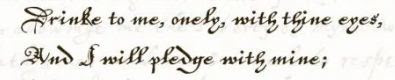 Drinke to me, onely, with thine eyes,
And I will pledge with mine;